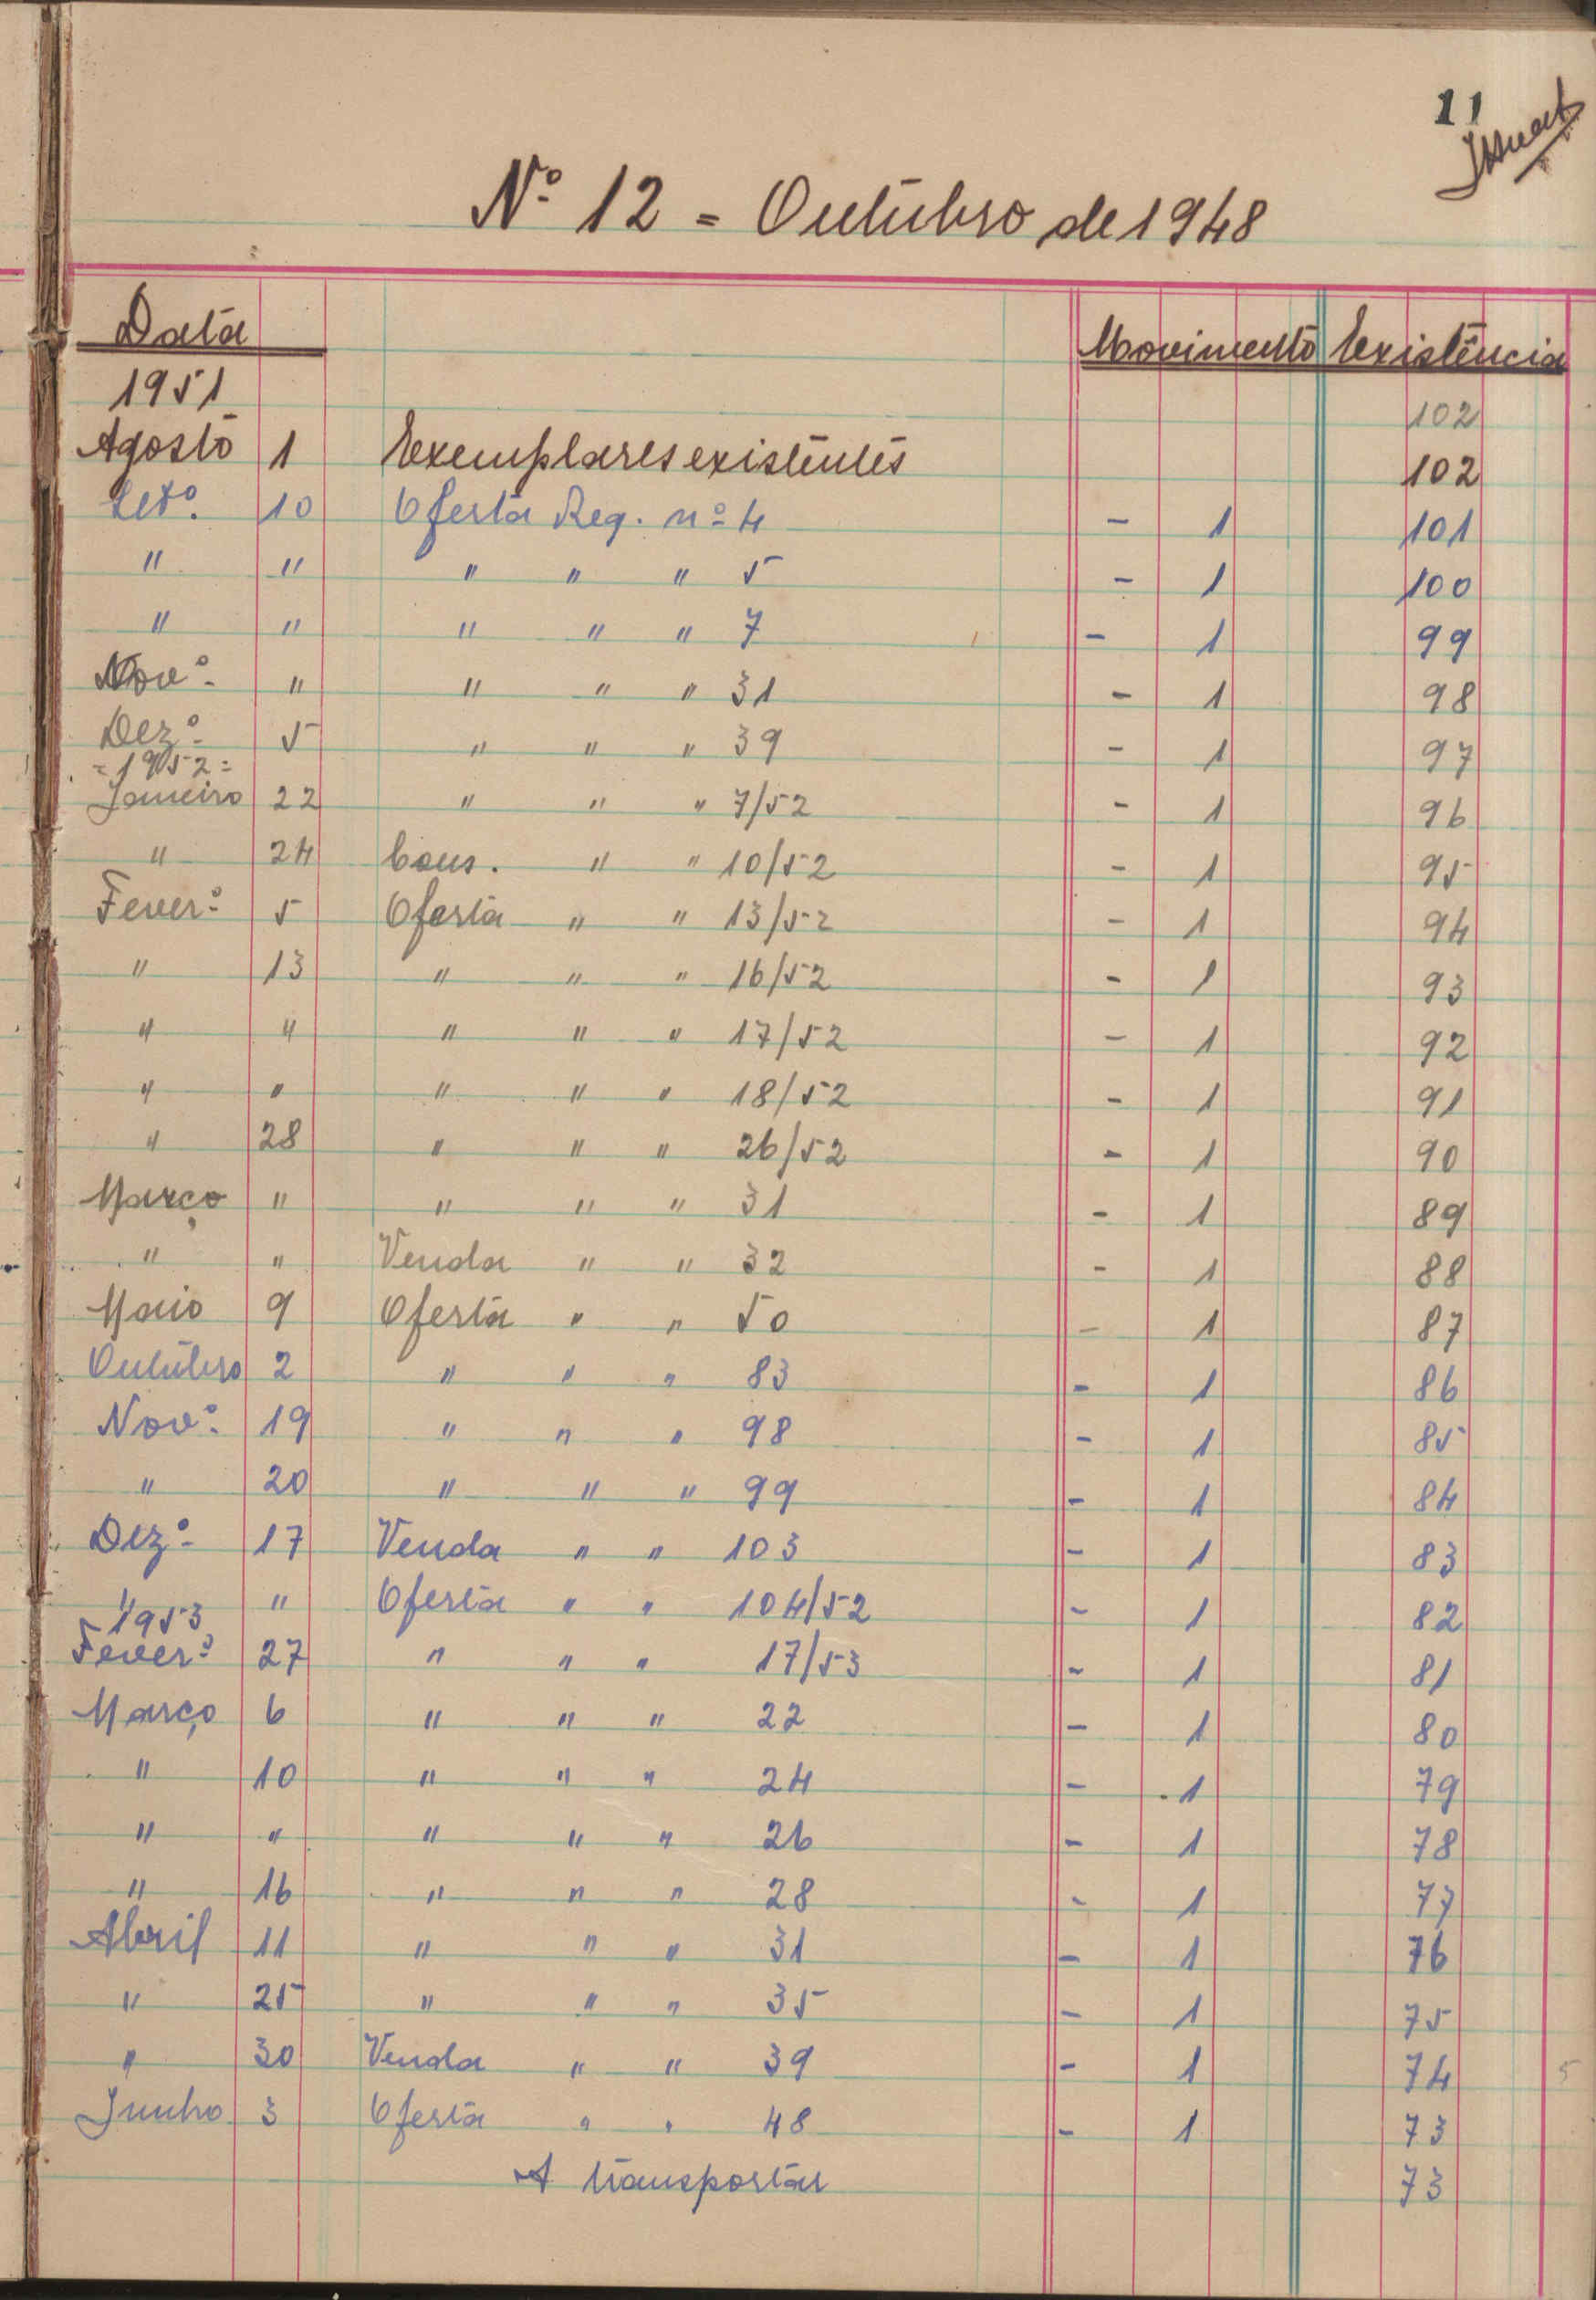 11
Nº 12 = Outubro de 1948
Data Movimento Existência
1951 102
Agosto 1 Exemplares existentes 102
Setº. 10 Oferta Reg. nº 4 - 1 101
" " " " " 5 - 1 100
" " " " " 7 - 1 99
Novº. " " " " 31 - 1 98
Dezº. 5 " " " 39 - 1 97
=1952=
Janeiro 22 " " " 7/52 - 1 96
" 24 Cons. " " 10/52 - 1 95
Feverº. 5 Oferta " " 13/52 - 1 94
" 13 " " " 16/52 - 1 93
" " " " " 17/52 - 1 92
" " " " " 18/52 - 1 91
" 28 " " " 26/52 - 1 90
Março " " " " 31 - 1 89
" " Venda " " 32 - 1 88
Maio 9 Oferta " " 50 - 1 87
Outubro 2 " " " 83 - 1 86
Novº. 19 " " " 98 - 1 85
" 20 " " " 99 - 1 84
Dezº. 17 Venda " " 103 - 1 83
" " Oferta " " 104/52 - 1 82
1953
Feverº. 27 " " " 17/53 - 1 81
Março 6 " " " 22 - 1 80
" 10 " " " 24 - 1 79
" " " " " 26 - 1 78
" 16 " " " 28 - 1 77
Abril 11 " " " 31 - 1 76
" 25 " " " 35 - 1 75
" 30 Venda " " 39 - 1 74
Junho 3 Oferta " " 48 - 1 73
A transportar 73